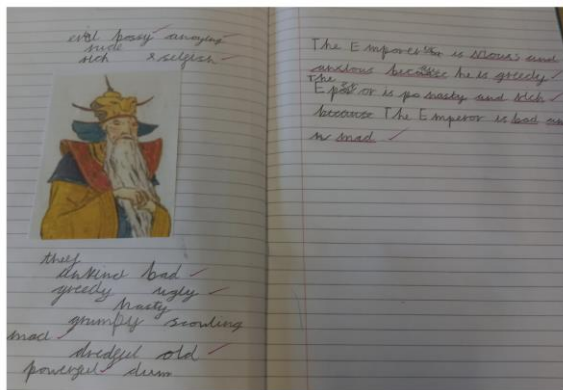 evil posey annoying
rude
rich & selfish
they
unkind bad
greedy ugly
nasty
grumpy scowling
mad
dredful old
powerful dum
The Emporer is and
anxious because he is greedy
The
is nasty and rich
because The Emperor is bad an
mad